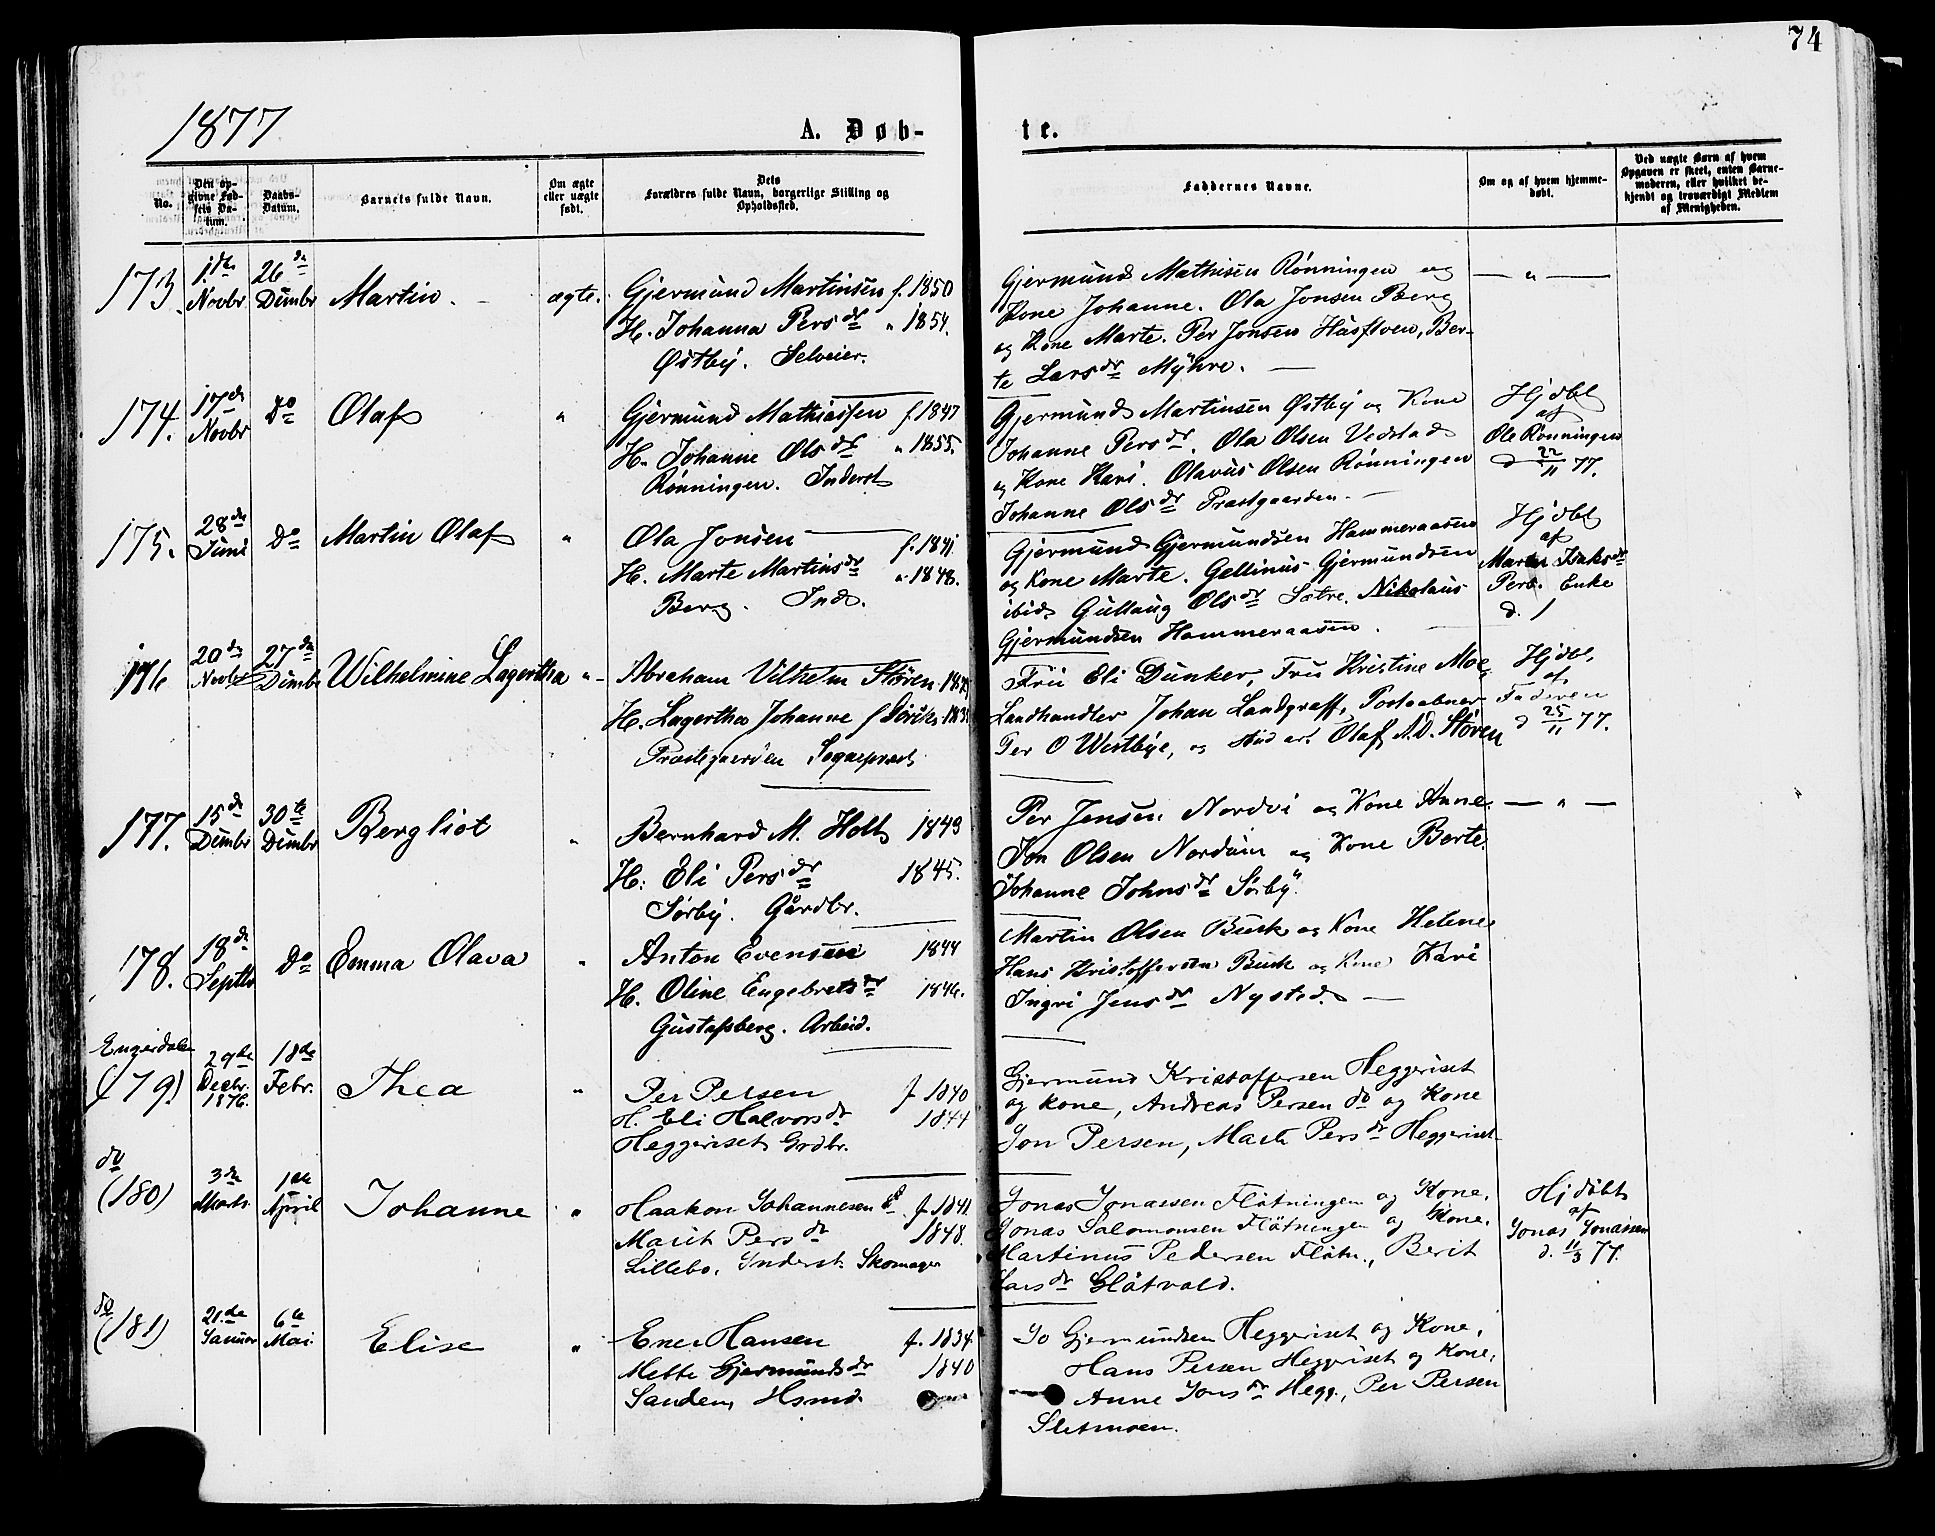 74
1877
A. Døb-
te.
No.
Den opgivne Fødsels Datum.
Daabs-Datum.
Barnets fulde Navn.
Om ægte eller uægte født.
Dets Forældres fulde Navn, borgerlige Stilling og Opholdssted.
Faddernes Navne.
Om og af hvem hjemmedøbt.
Ved uægte Børn af hvem Opgaven er skeet, enten Barnemoderen, eller hvilket bekjendt og troværdigt Medlem af Menigheden.
173. 1. de Novbr 26 de Dcmbr Martin. ægte. Gjermund Martinsen f. 1850
H. Johanna Persdr " 1854.
Østby. Selveier.
Gjermund Mathisen Rønningen og
Kone Johanne. Ola Jonsen Berg
og Kone Marte. Per Jonsen Husfloen, Ber-
te Larsdr Myhre. —
— " —
174. 17 de Novbr Do Olaf " Gjermund Mathiassen f 1847
H. Johanne Olsdr " 1855.
Rønningen. Inderst
Gjermund Martinsen Østby og Kone
Johanne Persdr. Ola Olsen Vedstad
og Kone Kari. Olavus Olsen Rønningen
Johanne Olsdr Præstgaarden. —
Hjdbt
af
Ole Rønningen
d 22/11 77.
175. 28 de Juni Do Martin Olaf " Ola Jonsen f. 1841.
H. Marte Martinsdr " 1848.
Berg. Ind.
Gjermund Gjermundsen Hammeraasen
og Kone Marte. Gellinus Gjermundsen
ibid. Gullaug Olsdr Sætre. Nikolaus
Gjermundsen Hammeraasen.
Hjdbt
af
Marte Isaksdr
Enke
d. /
176 20 de Novbr 27 de Dcmbr Wilhelmine Lagertha " Abraham Vilhelm Støren
H. Lagertha Johanne f
Præstegaarden Sogneprest
Fru Eli Dunker, Fru Kristine Moe,
Landhandler Johan Landgraff, Postaabner
Per O Westbye, og stud art. Olaf A.D. Støren
Hjdbt,
af
Faderen
d 25/11 77.
177. 15 de Dcmbr 30 te Dcmbr Bergliot " Bernhard M. Holt 1849
H. Eli Persdr 1845.
Sørby. Gårdbr.
Per Jensen Nordvi og Kone Anne.
Jon Olsen Kone Berte.
Johanne Johnsdr Sørby.
— " —
178. 18 de Septbr Do Emma Olava " Anton Evensen 1844
H. Oline Engebretsdr 1846.
Gustafsberg. Arbeid.
Martin Olsen Busk og Kone Helene
Hans Kristoffersen Busk og Kone Kari
Ingri Jensdr Nysted. —
Engerdalen
(179) 29 de Decbr. 1876. 18 de Febr. Thea " Per Persen f 1840
H. Eli Halvorsdr 1844
Heggeriset Grdbr.
Gjermund Kristoffersen Heggeriset
og kone, Andreas Persen do og Kone
Jon Persen, Marte Persdr Heggeriset
do
(180) 3 de Marts 1 ste April Johanne " Haakon Johannesen f. 1841.
Marit Persdr 1848.
Lillebo, Inderst. Skomager
Jonas Jonassen Fløtningen og Kone,
Jonas Salomonsen Fløtningen og Kone,
Martinus Pedersen Fløtn., Berit
Larsdr Gløtvold.
Hjdøbt
af
Jonas Jonassen
d. 11/3 77.
do
(181) 21. de Januar 6 te Mai. Elise " Ener Hansen f. 1834.
Mette Gjermundsdr 1840
Sanden, Hsmd.
Jo Gjermundsen Heggeriset og Kone,
Hans Persen Heggriset og Kone,
Anne Jonsdr Hegg., Per Persen
Sletmoen.